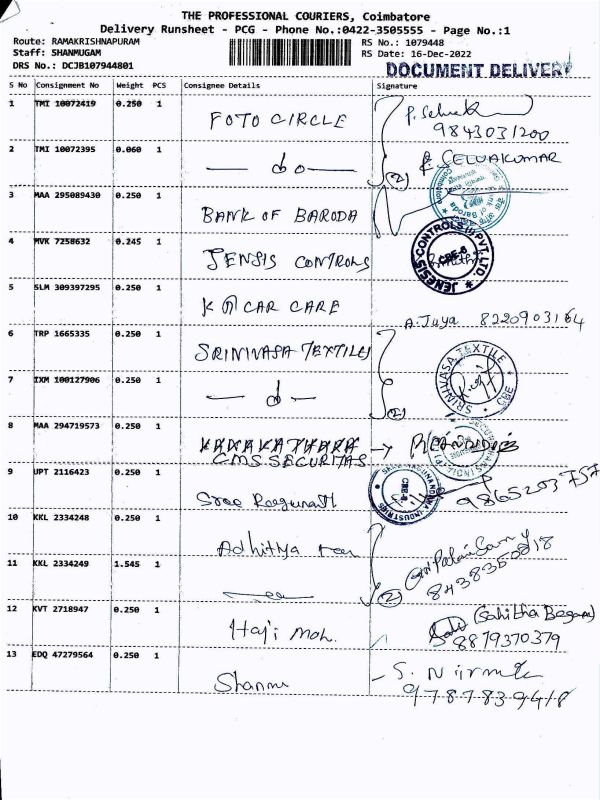 THE PROFESSIONAL COURIERS, Coimbatore
Delivery Runsheet - PCG - Phone No.:0422-3505555 - Page No.:1
Route: RAMAKRISHNAPURAM RS No.: 1079448
Staff: SHANMUGAM RS Date: 16-Dec-2022
DRS No.: DCJB107944801 DOCUMENT DELIVERY
S No Consignment No Weight PCS Consignee Details Signature
1 TMI 10072419 0.250 1 FOTO CIRCLE
9843031200
2 TMI 10072395 0.060 1 — do — (2) P. SELVAKUMAR
3 MAA 295089430 0.250 1 BANK OF BARODA
4 MVK 7258632 0.245 1 JENSIS CONTROLS JENESIS CONTROLS (I) PVT. LTD. CBE-6
5 SLM 309397295 0.250 1 CAR CARE
A. Jaya 8220903164
6 TRP 1665335 0.250 1 SRINIVASA TEXTILES SRINIVASA TEXTILE CBE
7 IXM 100127906 0.250 1 — do — (2)
8 MAA 294719573 0.250 1
CMS SECURITAS
9 UPT 2116423 0.250 1 Sree Ragunath INDUSTRIES
10 KKL 2334248 0.250 1 Adhithya
11 KKL 2334249 1.545 1 (2) 8438350818
12 KVT 2718947 0.250 1 Haji Moh. (Sahitha Begam)
8879370379
13 EDQ 47279564 0.250 1 Shanmu S. Nirmala
9787839418